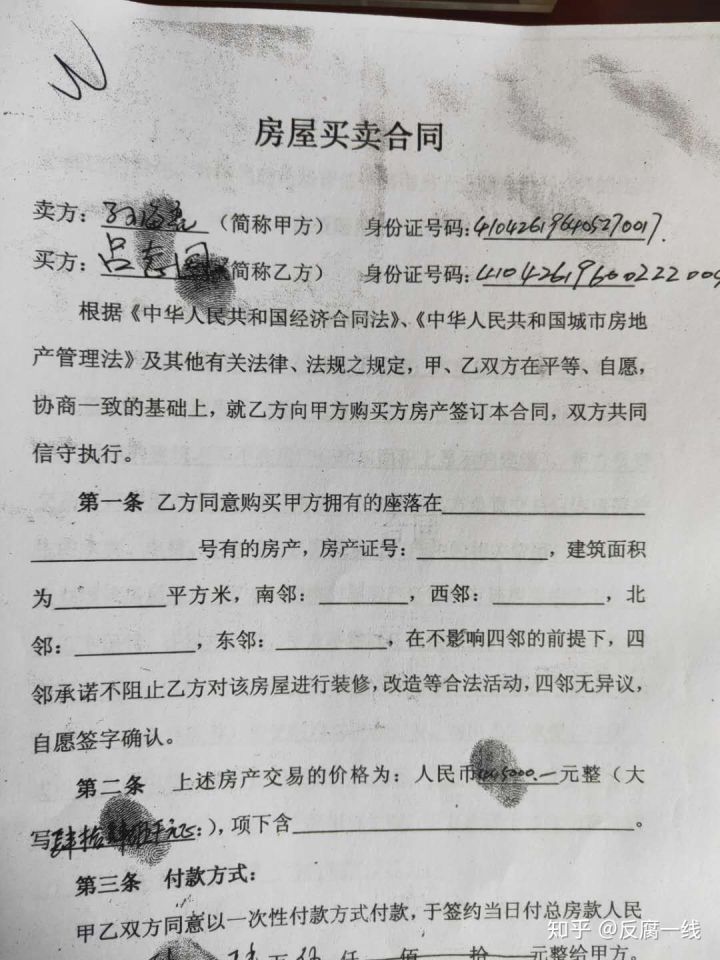 房屋买卖合同
卖方：（简称甲方） 身份证号码：410426196405270017.
买方：吕志国（简称乙方） 身份证号码：41042619600222200
根据《中华人民共和国经济合同法》、《中华人民共和国城市房地
产管理法》及其他有关法律、法规之规定，甲、乙双方在平等、自愿，
协商一致的基础上，就乙方向甲方购买方房产签订本合同，双方共同
信守执行。
第一条 乙方同意购买甲方拥有的座落在____________
____________号有的房产，房产证号：________，建筑面积
为________平方米，南邻：________，西邻：________，北
邻：________，东邻：________，在不影响四邻的前提下，四
邻承诺不阻止乙方对该房屋进行装修，改造等合法活动，四邻无异议，
自愿签字确认。
第二条 上述房产交易的价格为：人民币元整（大
写），项下含____________。
第三条 付款方式：
甲乙双方同意以一次性付款方式付款，于签约当日付总房款人民
万 仟 佰 拾 元整给甲方。
知乎 @反腐一线